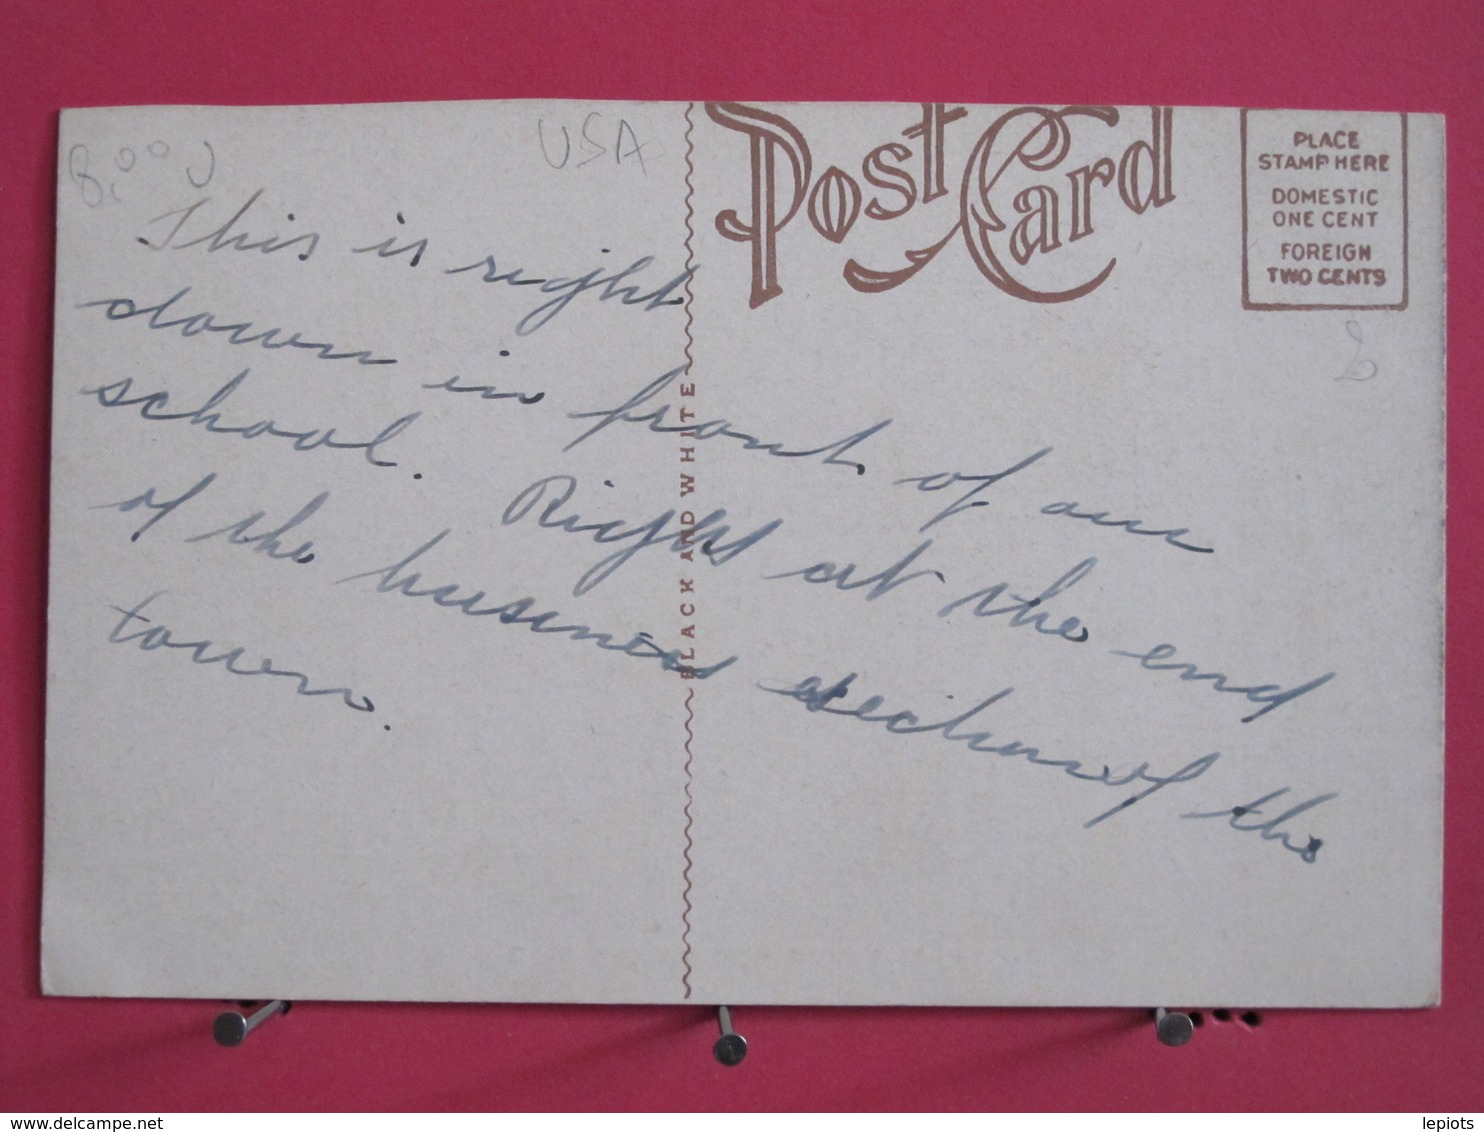 8.00
USA
Post Card
PLACE
STAMP HERE
DOMESTIC
ONE CENT
FOREIGN
TWO CENTS
2
This is right
down in front of our
school. Right at the end
of the business section of the
town.
BLACK AND WHITE
www.delcampe.net
lepiots